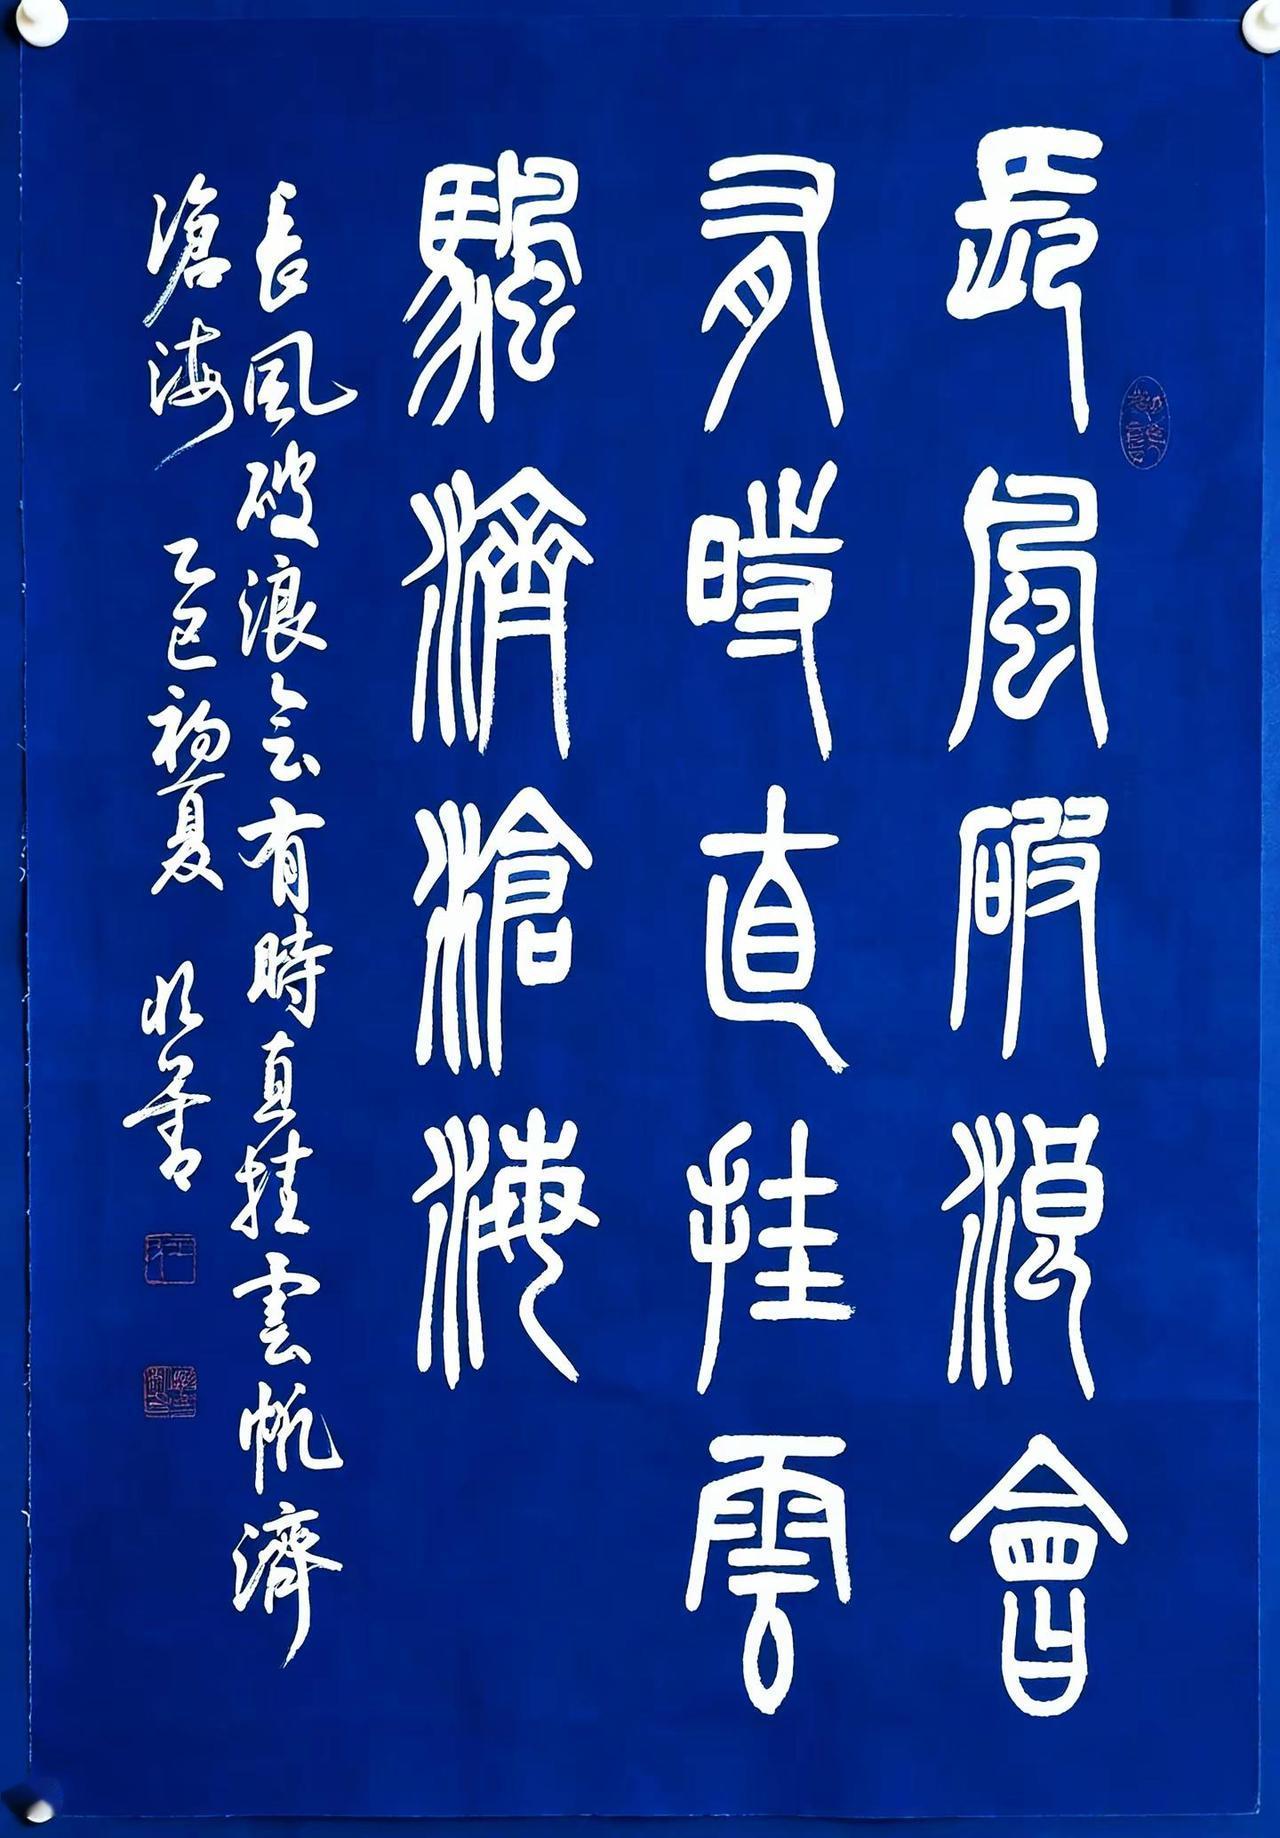 長風破浪會
有時直挂雲
颿濟滄海
長風破浪会有時直挂雲帆濟
滄海 乙巳初夏 書